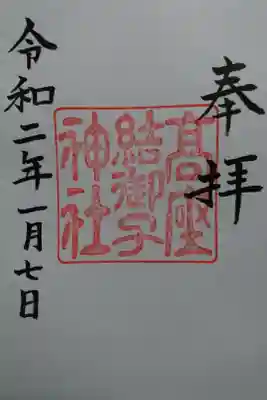 奉拝
高座
結御子
神社
令和二年一月七日